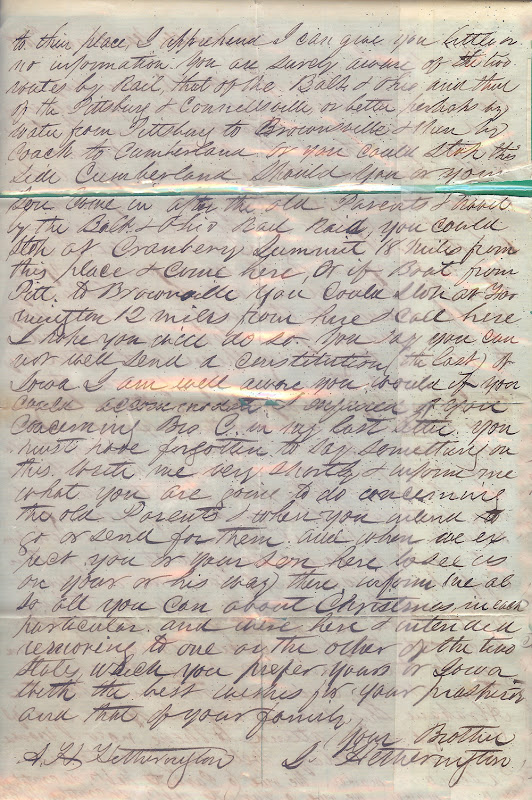 to this place, I apprehend I can give you little or
no information. You are surely aware of the two
routes by Rail, that of the Balt & Ohio and that
of the Pittsburg & Connellsville or better perhaps by
water from Pittsburg to Brownsville & then by
Coach to Cumberland or you could stop this
side Cumberland Should you or your
son come in after the old Parents &
by the Balt & Ohio Rail Road, you could
stop at Cranberry Summit 18 miles from
this place & come here, Or if Boat from
Pitt. to Brownsville you could stop at Far
mington 12 miles from here & call here
I hope you will do so. You say you can
not well send a constitution (the last) of
Iowa I am well aware you would if you
could I inquired of you
concerning Bro. C. in my last letter you
must have forgotten to say something on
this. Write me very shortly & inform me
what you are going to do concerning
the old Parents & when you intend to
go or send for them. and when we ex
pect you or your son here to see us
on your or his way there inform me al
so all you can about Christmas in every
particular. and were here & intended
removing to one or the other of the two
which you prefer yours or Iowa
With the best wishes for your prosperity
and that of your family
Your Brother
A. H. Hetherington J. Hetherington